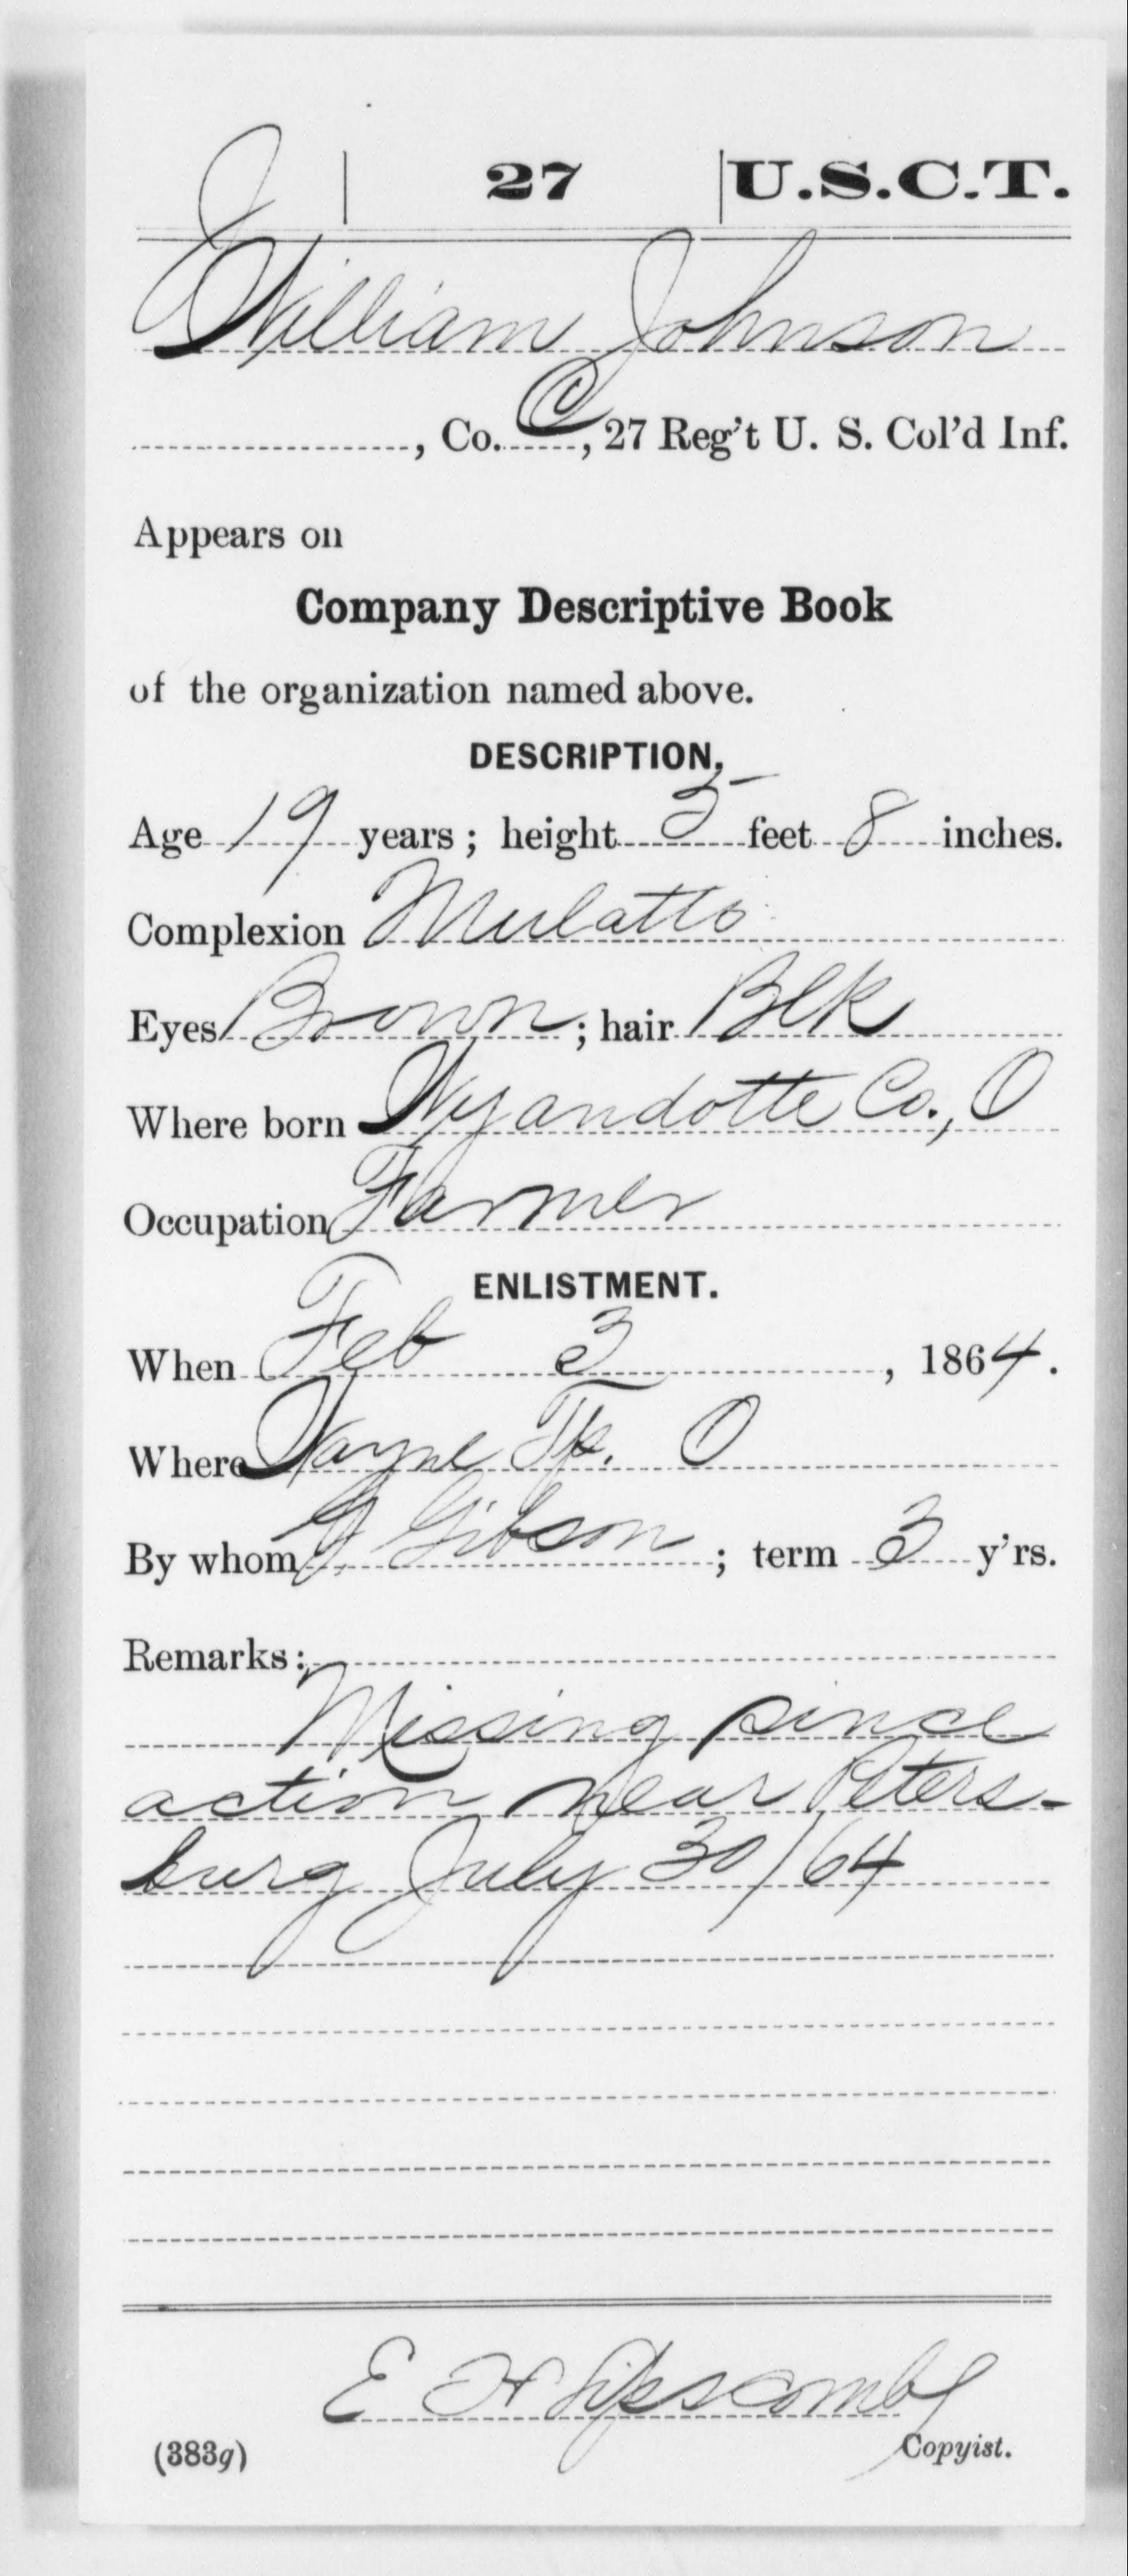 J | 27 | U.S.C.T.
William Johnson
, Co. C, 27 Reg't U. S. Col'd Inf.
Appears on
Company Descriptive Book
of the organization named above.
DESCRIPTION.
Age 19 years; height 5 feet 8 inches.
Complexion Mulatto
Eyes Brown; hair Blk
Where born Wyandotte Co., O
Occupation Farmer
ENLISTMENT.
When Feb 3, 1864.
Where Wayne Tp. O
By whom G Gibson; term 3 y'rs.
Remarks:
Missing since
action near Peters-
burg July 30/64
E H Lipscomb
(383g) Copyist.